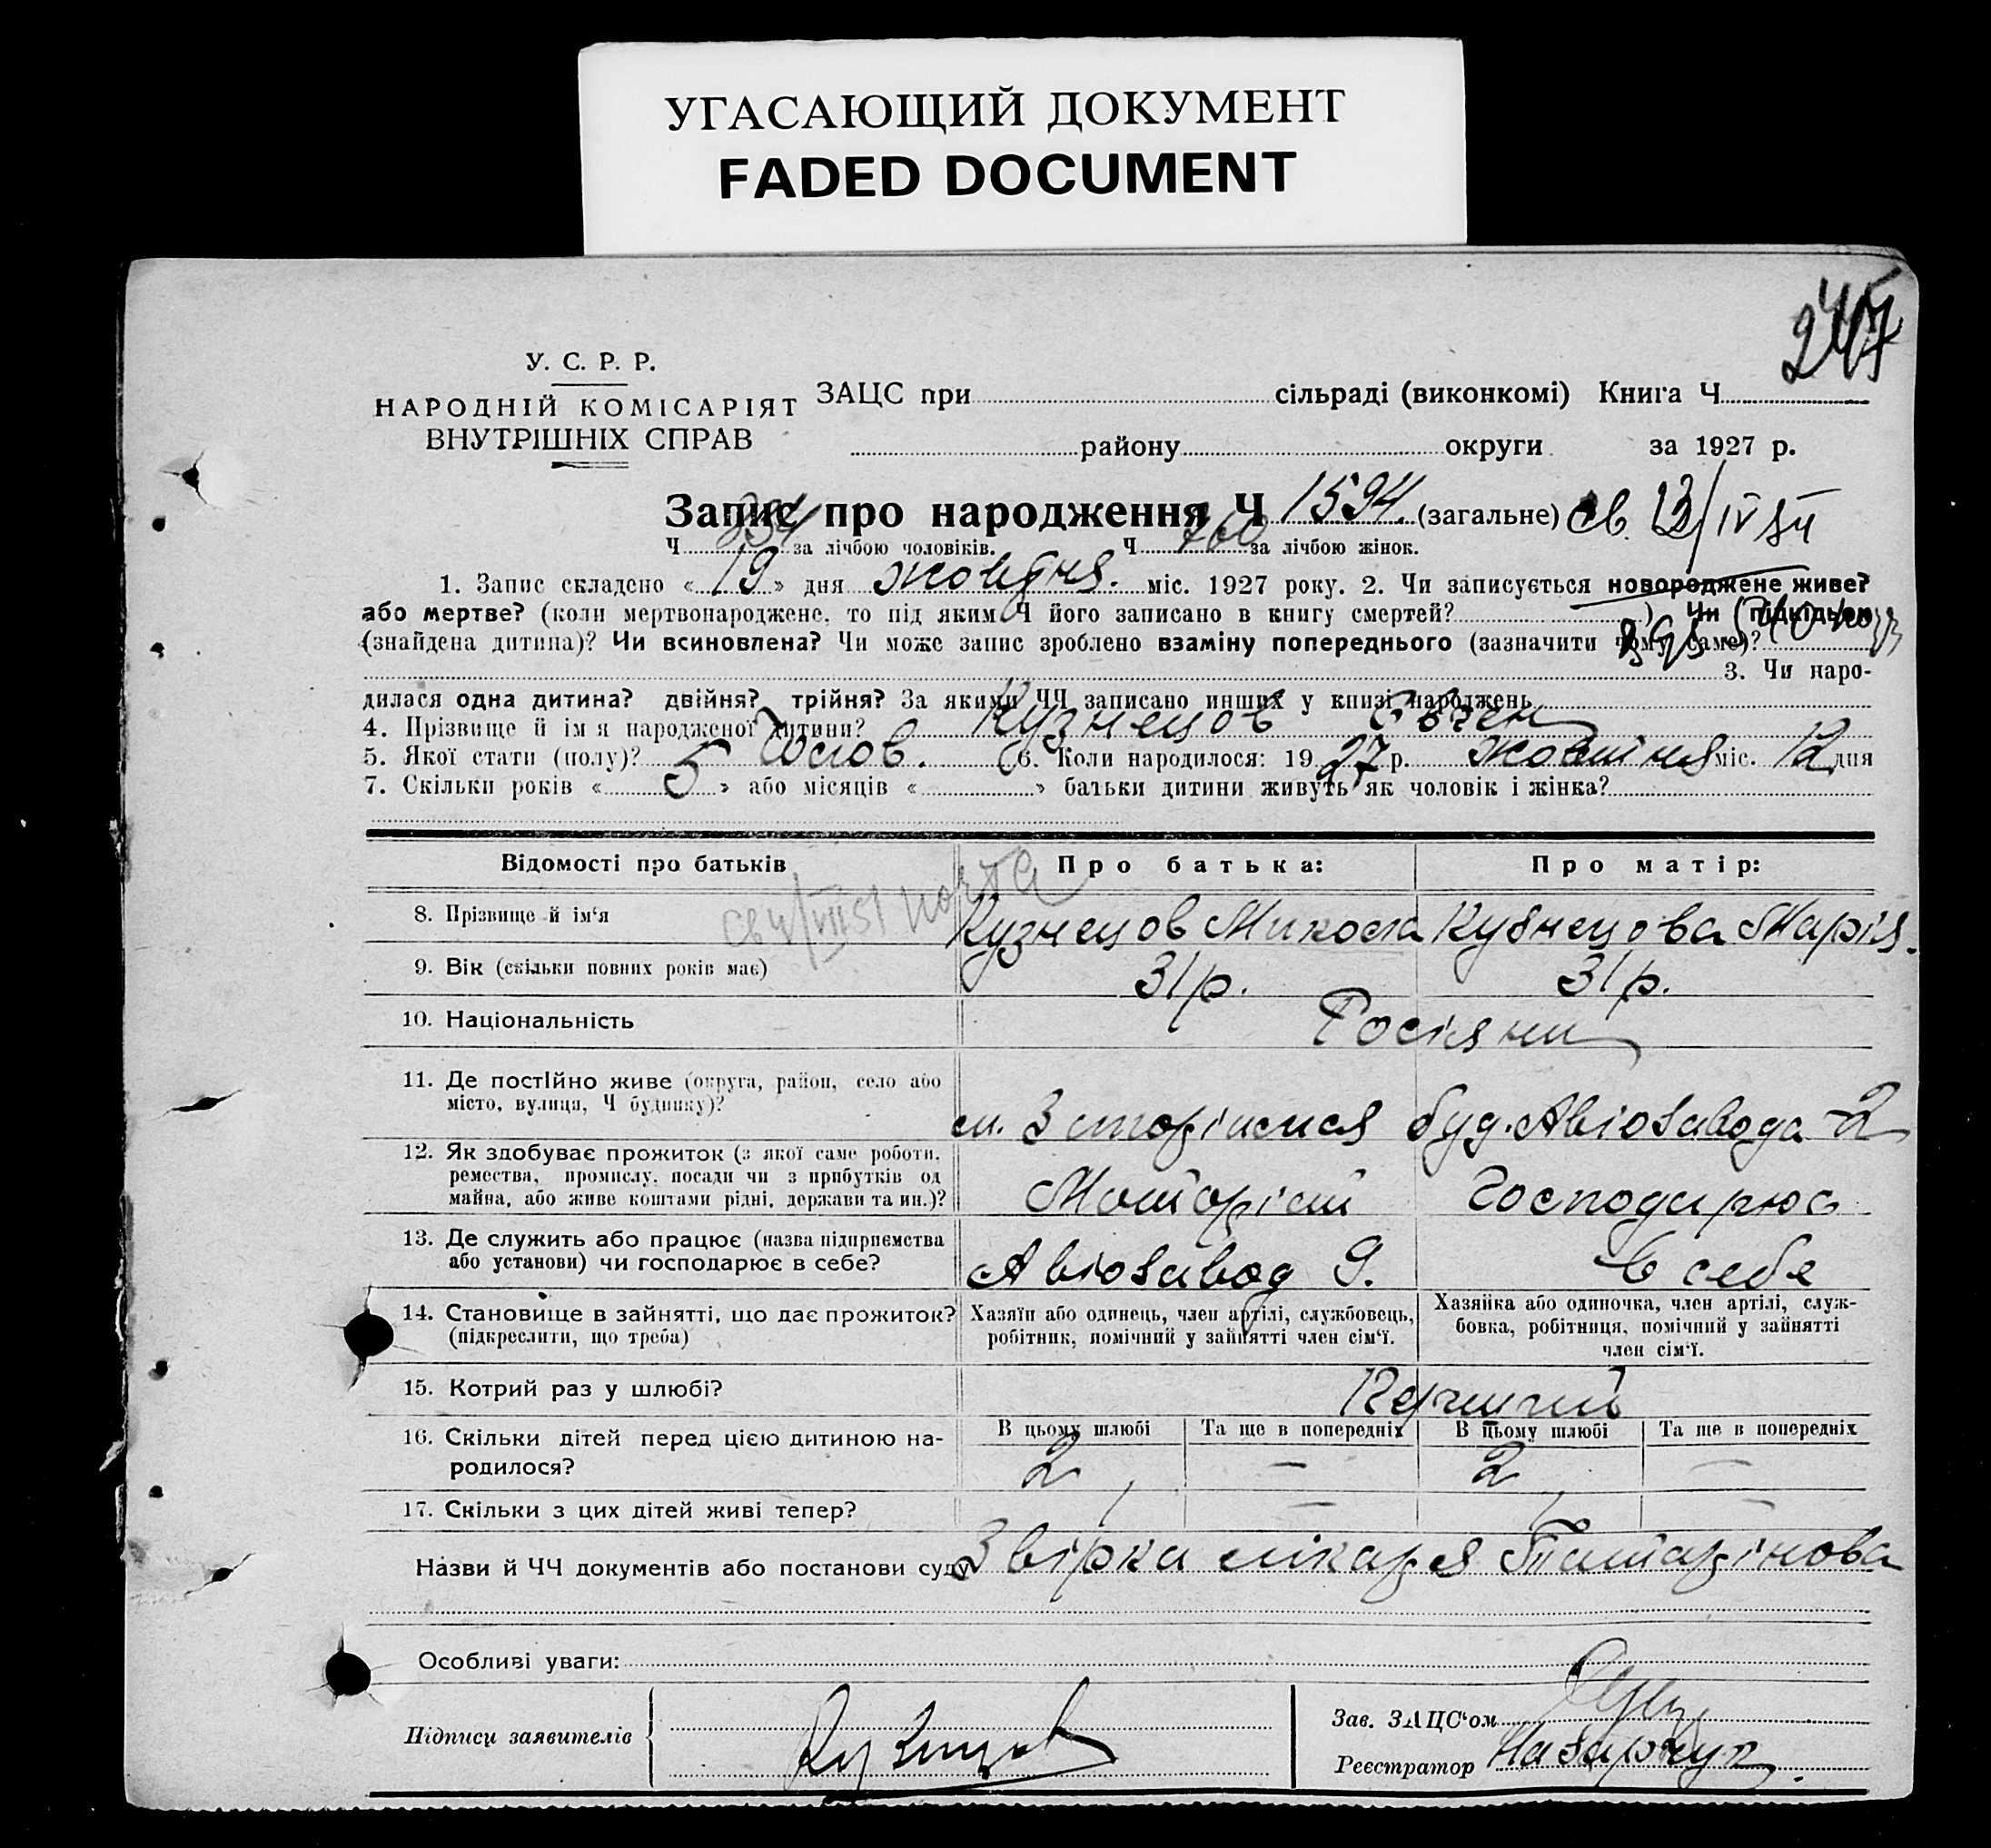 УГАСАЮЩИЙ ДОКУМЕНТ
FADED DOCUMENT
У. С. Р. Р.
НАРОДНІЙ КОМІСАРІЯТ
ВНУТРІШНІХ СПРАВ
ЗАЦС при сільраді (виконкомі) Книга Ч
району округи за 1927 р.
Запис про народження Ч 1594. (загальне)
Ч за лічбою чоловіків. Ч 760 за лічбою жінок.
1. Запис складено « 19 » дня жовтня. міс. 1927 року. 2. Чи записується новороджене живе?
або мертве? (коли мертвонароджене, то під яким Ч його записано в книгу смертей? ) Чи підкідьок
(знайдена дитина)? Чи всиновлена? Чи може запис зроблено взаміну попереднього (зазначити чому саме)?
3. Чи наро-
дилася одна дитина? двійня? трійня? За якими ЧЧ записано инших у книзі народжень
4. Прізвище й ім я народженої дитини? Кузнецов Євген
5. Якої стати (полу)? Чолов. 6. Коли народилося: 19 27 р. жовтня міс. 12 дня
7. Скільки років « 5 » або місяців « » батьки дитини живуть як чоловік і жінка?
Відомості про батьків Про батька: Про матір:
8. Прізвище й ім‘я Кузнецов Микола Кузнецова Марія.
9. Вік (скільки повних років має) 31 р. 31 р.
10. Національність Росіяни
11. Де постійно живе (округа, район, село або
місто, вулиця, Ч будинку)?
м. Запоріжжя буд. Авіозавода 2
12. Як здобуває прожиток (з якої саме роботи,
ремества, промислу, посади чи з прибутків од
майна, або живе коштами рідні, держави та ин.)?
Моторіст Господарює
13. Де служить або працює (назва підприємства
або установи) чи господарює в себе?
Авіозавод 9. В себе
14. Становище в зайнятті, що дає прожиток?
(підкреслити, що треба)
Хазяїн або одинець, член артілі, службовець,
робітник, помічний у зайнятті член сім‘ї.
Хазяйка або одиночка, член артілі, служ-
бовка, робітниця, помічний у зайнятті
член сім‘ї.
15. Котрий раз у шлюбі? Перший
16. Скільки дітей перед цією дитиною на-
родилося?
В цьому шлюбі Та ще в попередніх В цьому шлюбі Та ще в попередніх
2 — 2 —
17. Скільки з цих дітей живі тепер? 1 — 1 —
Назви й ЧЧ документів або постанови суду Звірка лікаря
Особливі уваги:
Підписи заявителів Кузнецов
Зав. ЗАЦС‘ом
Реєстратор Назарчук.